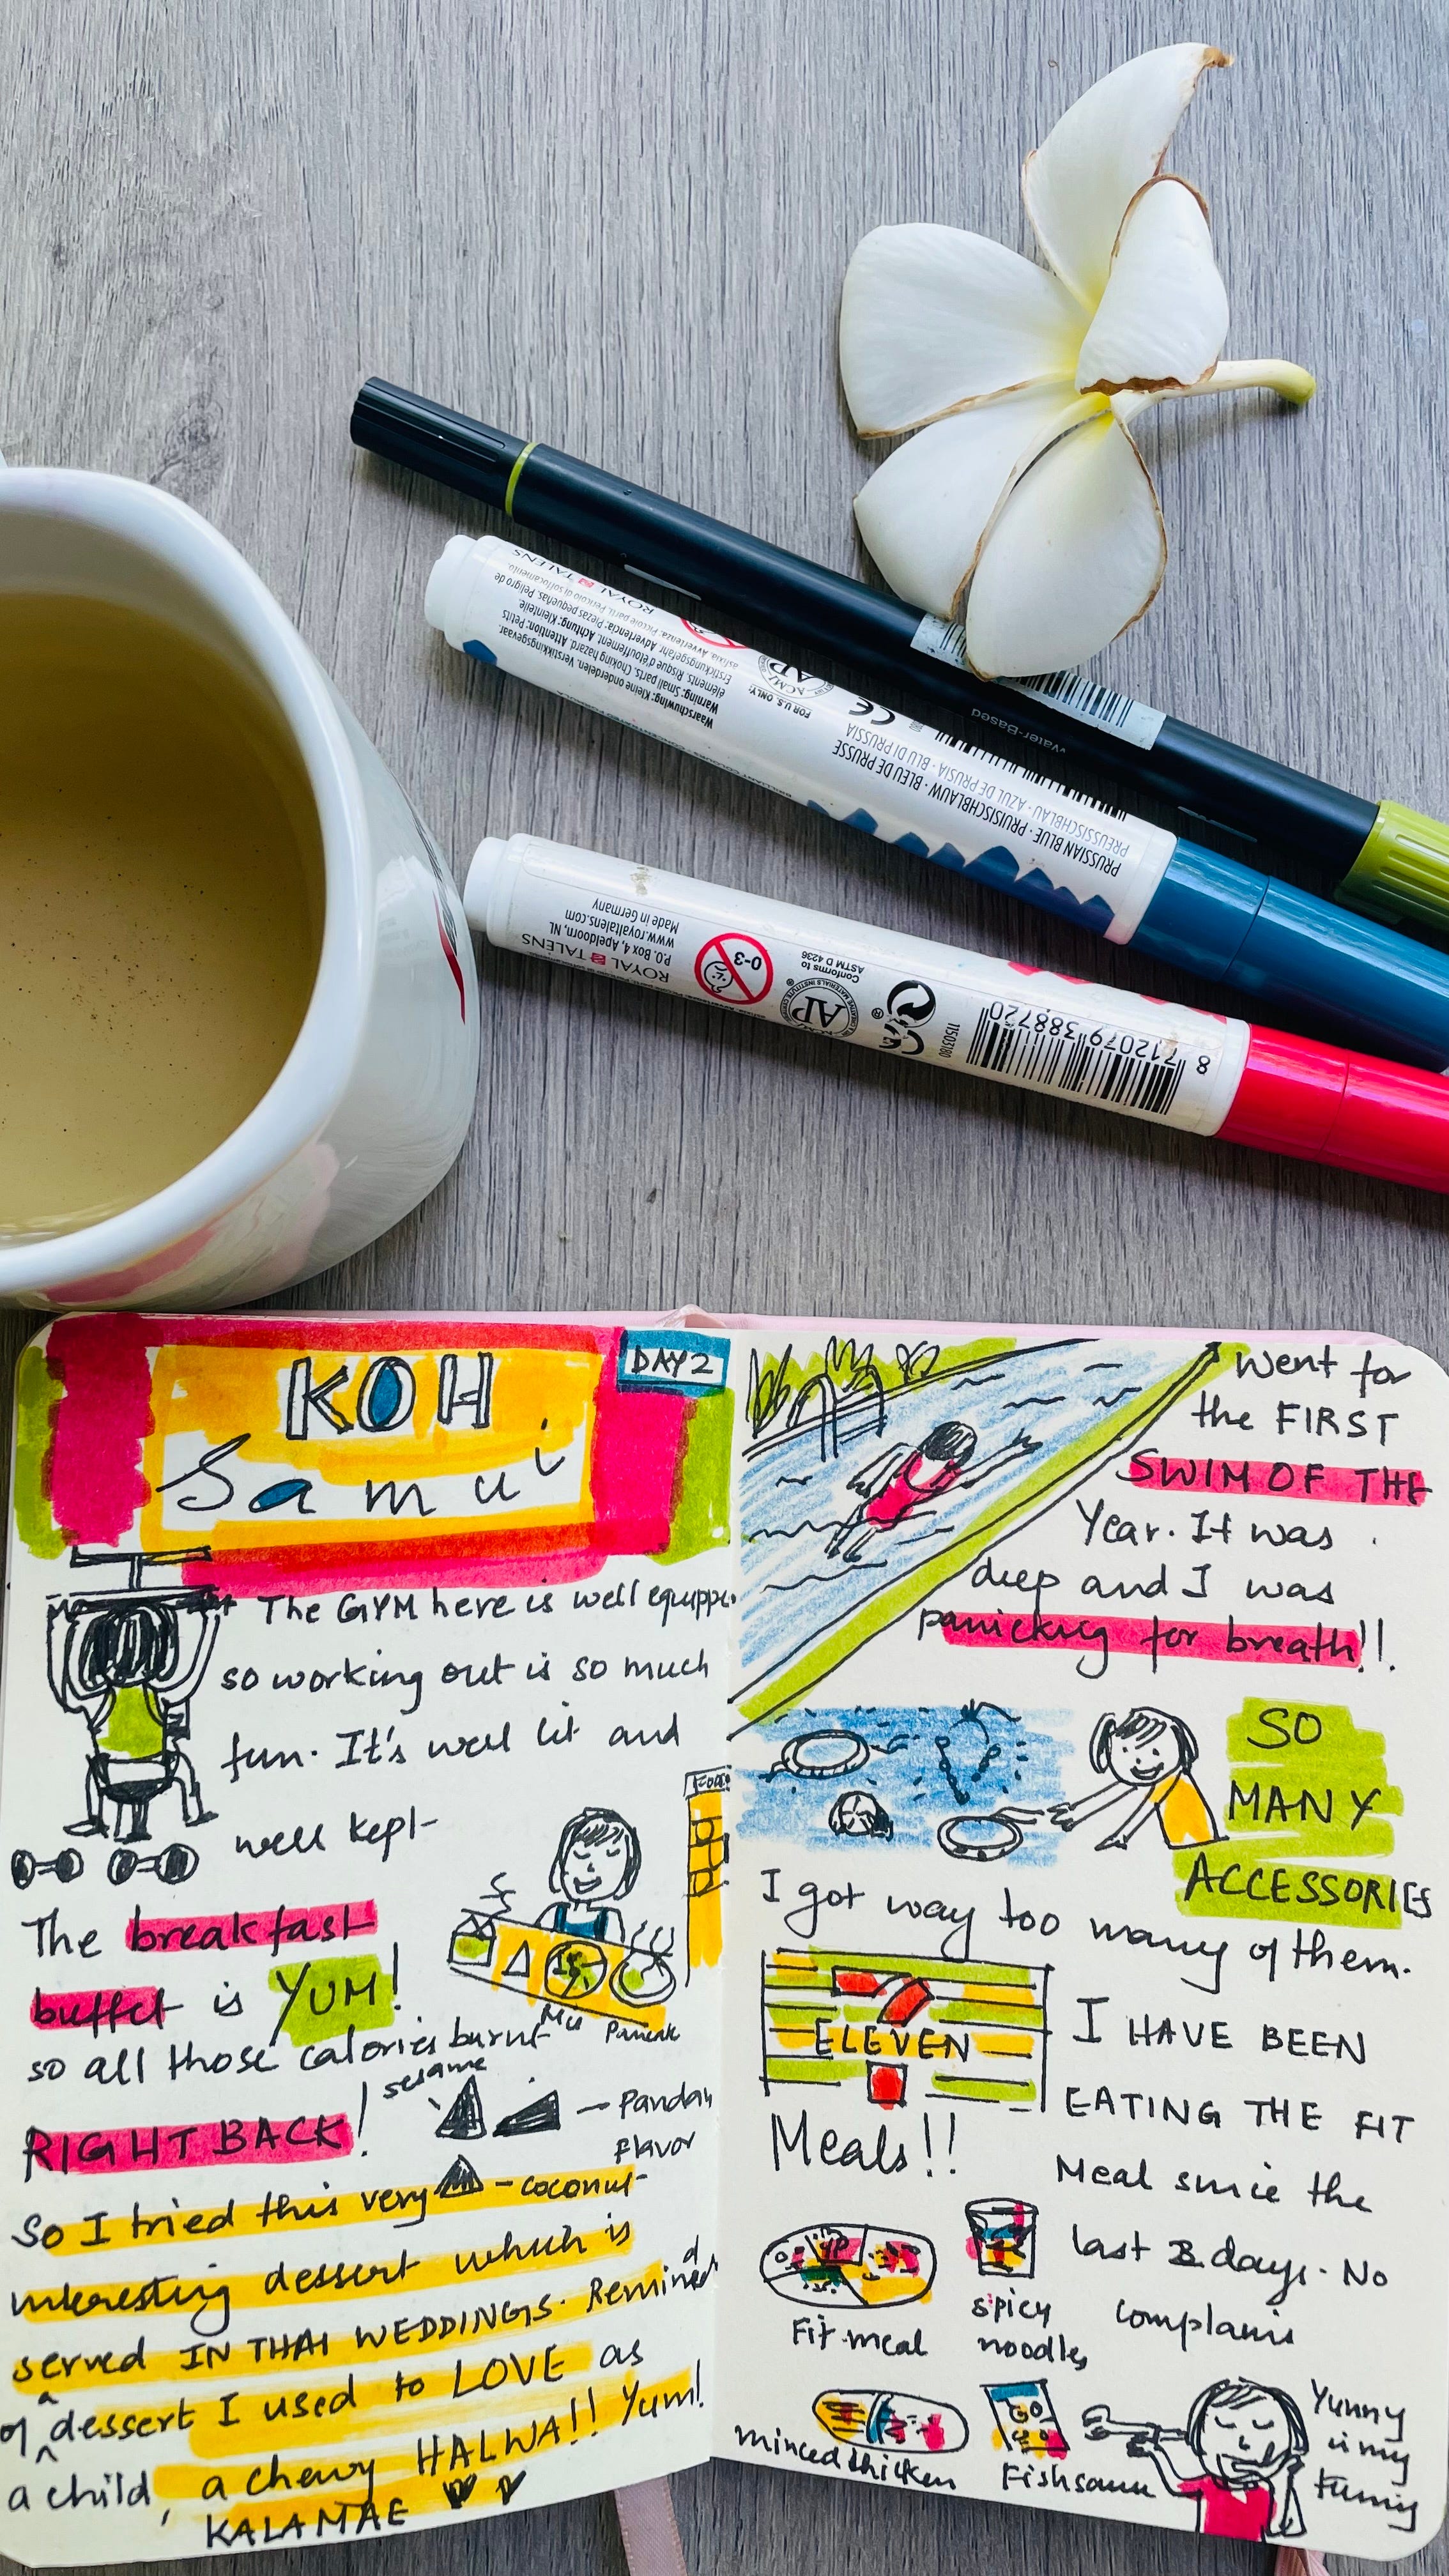 Water-Based
ROYAL TALENS
Waarschuwing: Kleine onderdelen. Verstikkingsgevaar.
Warning: Small parts. Choking hazard. Attention: Petits
éléments. Risque d'étouffement. Achtung: Kleinteile.
Erstickungsgefahr. Advertencia: Piezas pequeñas. Peligro de
asfixia. Avvertenza: Piccole parti. Pericolo di soffocamento.
FOR U.S. ONLY:
AP
ACMI
CE
PRUSSIAN BLUE · PRUISISCHBLAUW · BLEU DE PRUSSE
PREUSSISCHBLAU · AZUL DE PRUSIA · BLU DI PRUSSIA
ROYAL TALENS
P.O. Box 4, Apeldoorn, NL
www.royaltalens.com
Made in Germany
0-3
AP
Conforms to
ASTM D 4236
CE
11503180
8 712079 388720
KOH
Samui
DAY 2
The GYM here is well equippe
so working out is so much
fun. It's well lit and
well kept
The breakfast
buffet is YUM!
so all those calories burnt
RIGHT BACK!
sesame
Pandan
flavor
coconut
So I tried this very
interesting dessert which is
served IN THAI WEDDINGS. Reminded
of a dessert I used to LOVE as
a child, a chewy HALWA!! Yum!
KALAMAE
Went for
the FIRST
SWIM OF THE
Year. It was
deep and I was
panicking for breath!!
SO
MANY
ACCESSORIES
I got way too many of them.
ELEVEN
Meals!!
I HAVE BEEN
EATING THE FIT
Meal since the
last 3 days. No
complains
Fit meal
spicy
noodles
minced chicken
Fish sauce
Yummy
in my
tummy